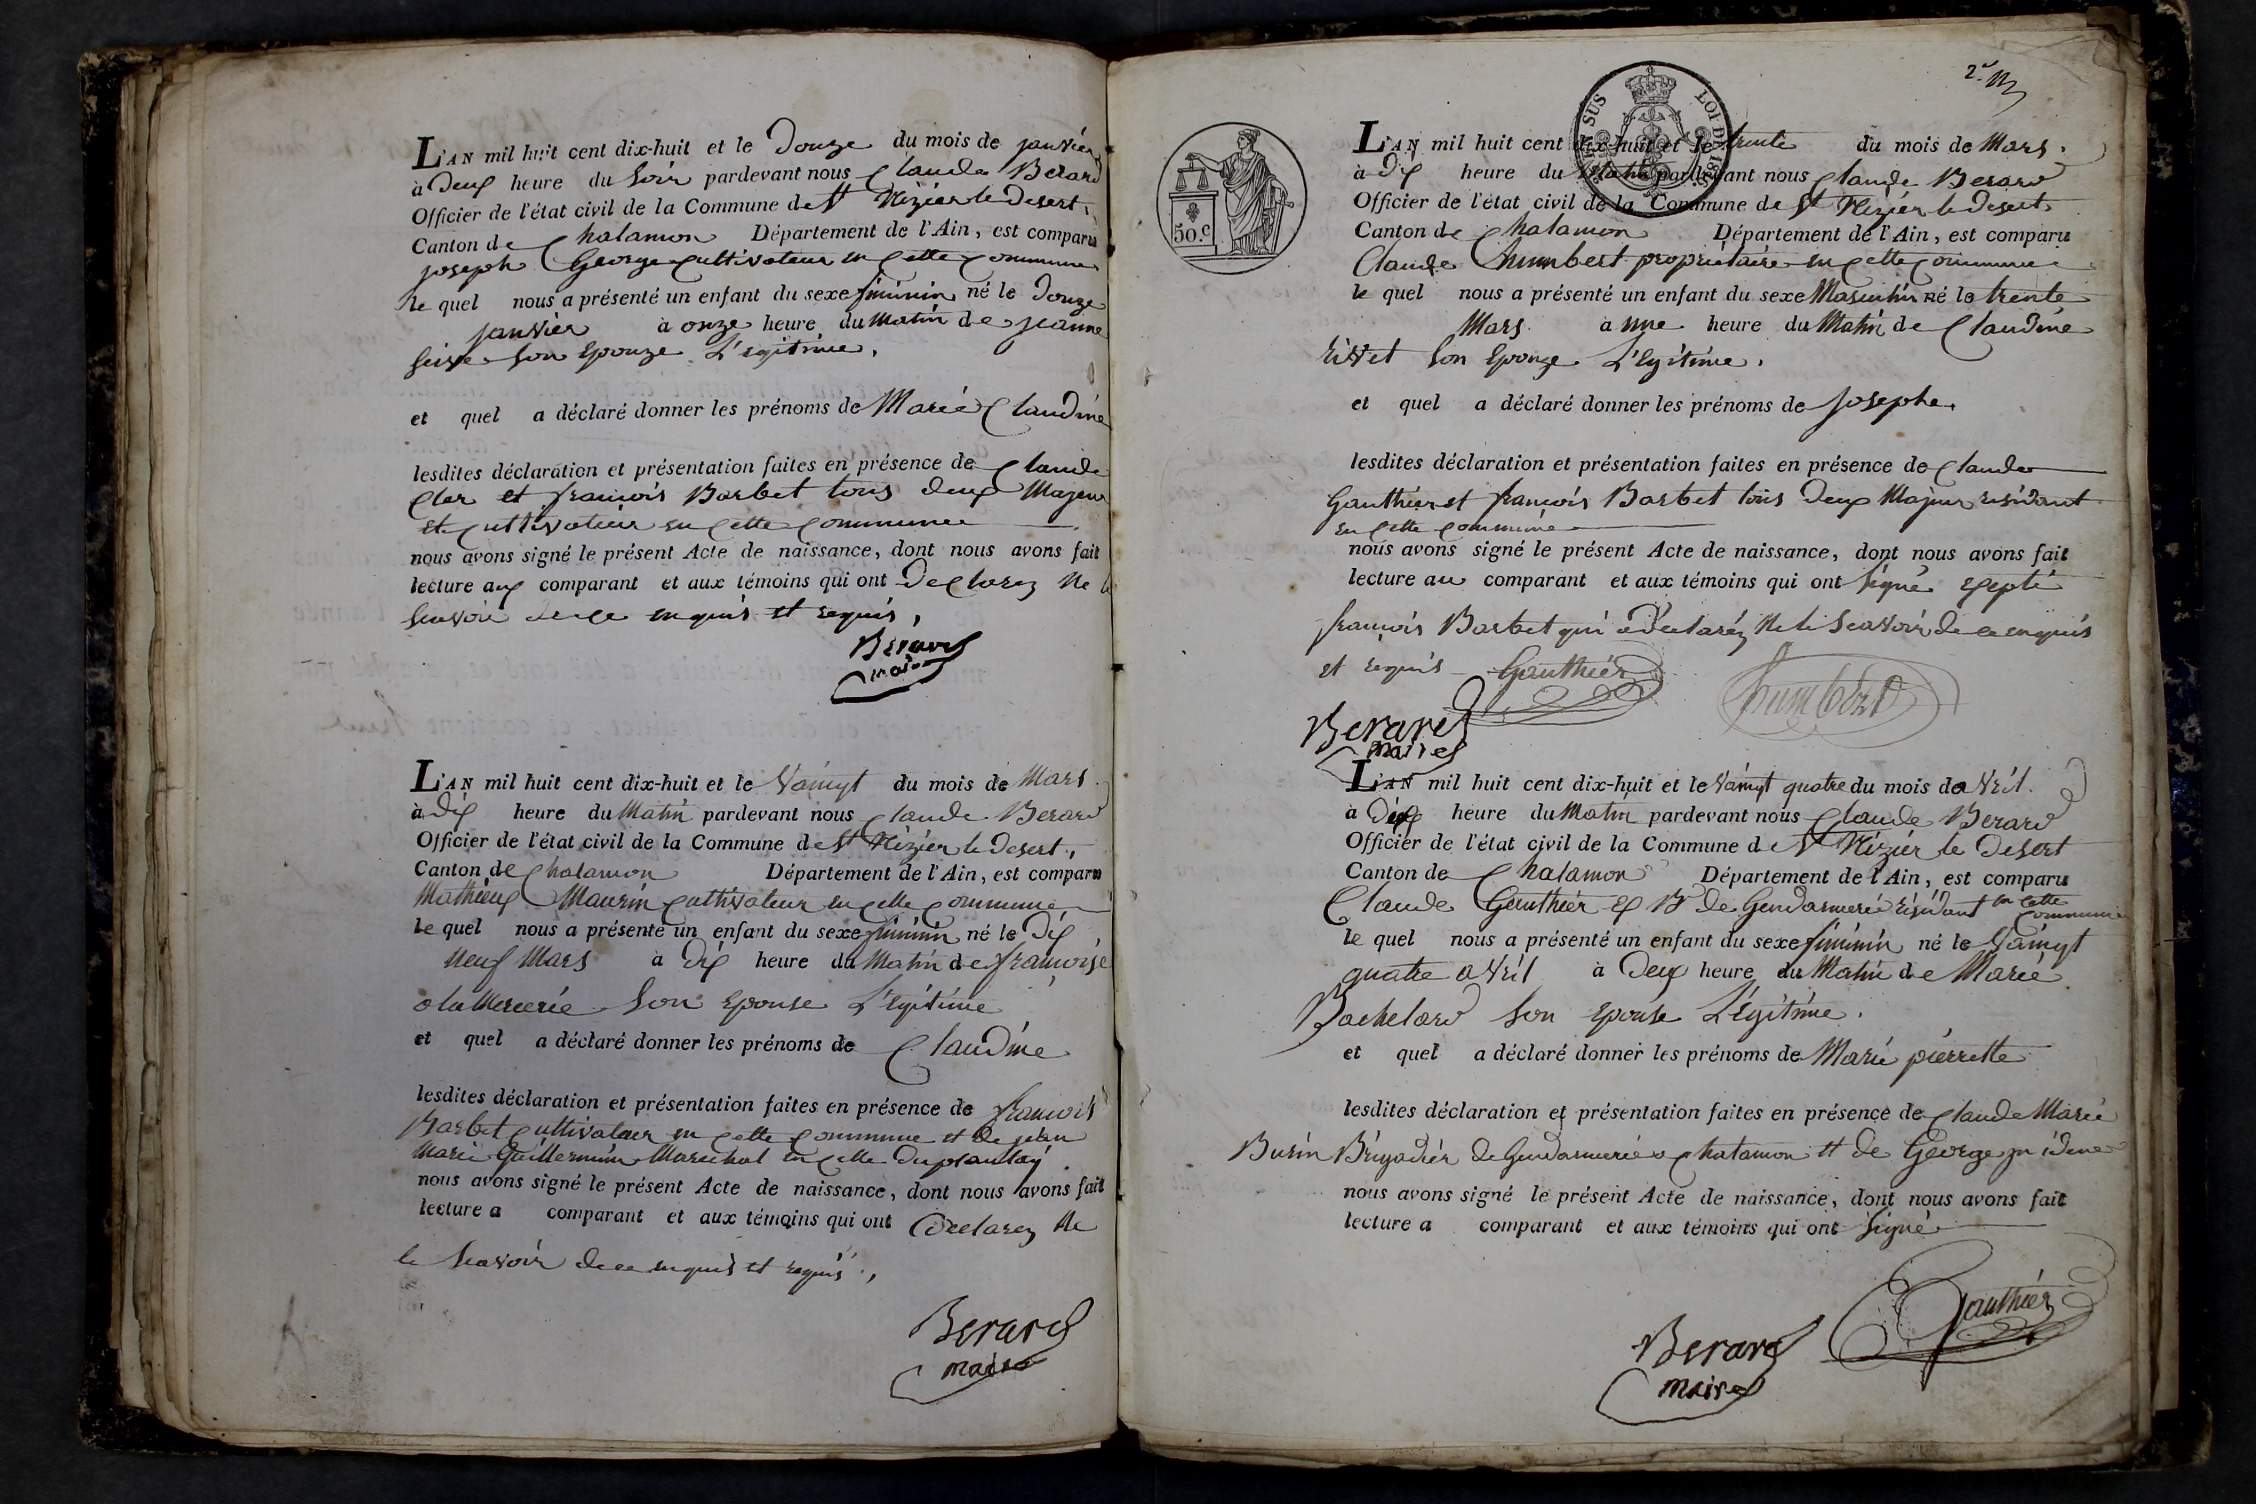 L'AN mil huit cent dix-huit et le Douze du mois de janvier
à Deux heure du Soir pardevant nous Claude Berard
Officier de l'état civil de la Commune de St Nizier le Desert,
Canton de Chalamon Département de l'Ain, est comparu
joseph George cultivateur en cette commune
le quel nous a présenté un enfant du sexe feminin né le Douze
janvier à onze heure du Matin de jeanne
son Epouze L'egitime,
et quel a déclaré donner les prénoms de Marie Claudine
lesdites déclaration et présentation faites en présence de Claude
Clar et francois Barbet tous deux Majeur
et cultivateur en cette commune
nous avons signé le présent Acte de naissance, dont nous avons fait
lecture aux comparant et aux témoins qui ont Declarez Ne le
scavoir de ce enquis et requis,
Berard
maire
L'AN mil huit cent dix-huit et le Vaingt du mois de Mars
à Dix heure du Matin pardevant nous Claude Berard
Officier de l'état civil de la Commune de St Nizier le Desert,
Canton de Chalamon Département de l'Ain, est comparu
Mathieux Maurin cultivateur en cette commune
le quel nous a présenté un enfant du sexe feminin né le Dix
Neuf Mars à Dix heure du Matin de francoise
alamercerie Son Epouse L'egitime
et quel a déclaré donner les prénoms de Claudine
lesdites déclaration et présentation faites en présence de francois
Barbet cultivateur en cette commune et de jean
Marie Guillermin Marechal en celle du plantay
nous avons signé le présent Acte de naissance, dont nous avons fait
lecture a comparant et aux témoins qui ont Declarez Ne
le Scavoir de ce enquis et requis,
Berard
maire
2e
TIMBRE SUS LOI DE 1816
50.c
L'AN mil huit cent dix-huit et le trente du mois de Mars.
à Dix heure du Matin pardevant nous Claude Berard
Officier de l'état civil de la Commune de St Nizier le Desert
Canton de Chalamon Département de l'Ain, est comparu
Claude Humbert propriétaire en cette commune
le quel nous a présenté un enfant du sexe Masculin né le trente
Mars à une heure du Matin de Claudine
rivet Son Epouze L'Egitime.
et quel a déclaré donner les prénoms de josephe,
lesdites déclaration et présentation faites en présence de Claude
Gauthier et francois Barbet tous Deux Majeur residant
en cette commune
nous avons signé le présent Acte de naissance, dont nous avons fait
lecture au comparant et aux témoins qui ont Signé exepté
francois Barbet qui a Declaréz Ne le Scavoir de ce enquis
et requis Gauthier Humbert
Berard
maire
L'AN mil huit cent dix-huit et le Vaingt quatre du mois d avril.
à Dix heure du Matin pardevant nous Claude Berard
Officier de l'état civil de la Commune de St Nizier le Desert
Canton de Chalamon Département de l'Ain, est comparu
Claude Gauthier Ex Br de Gendarmerie résidant en cette commune
le quel nous a présenté un enfant du sexe feminin né le Vaingt
quatre avril à Deux heure du Matin de Marie
Bachelard Son Epouse L'égitime.
et quel a déclaré donner les prénoms de Marie pierrette
lesdites déclaration et présentation faites en présence de Claude Marie
Burin Brigadier de Gendarmerie a chalamon et de George
nous avons signé le présent Acte de naissance, dont nous avons fait
lecture a comparant et aux témoins qui ont Signé
Gauthier
Berard
maire